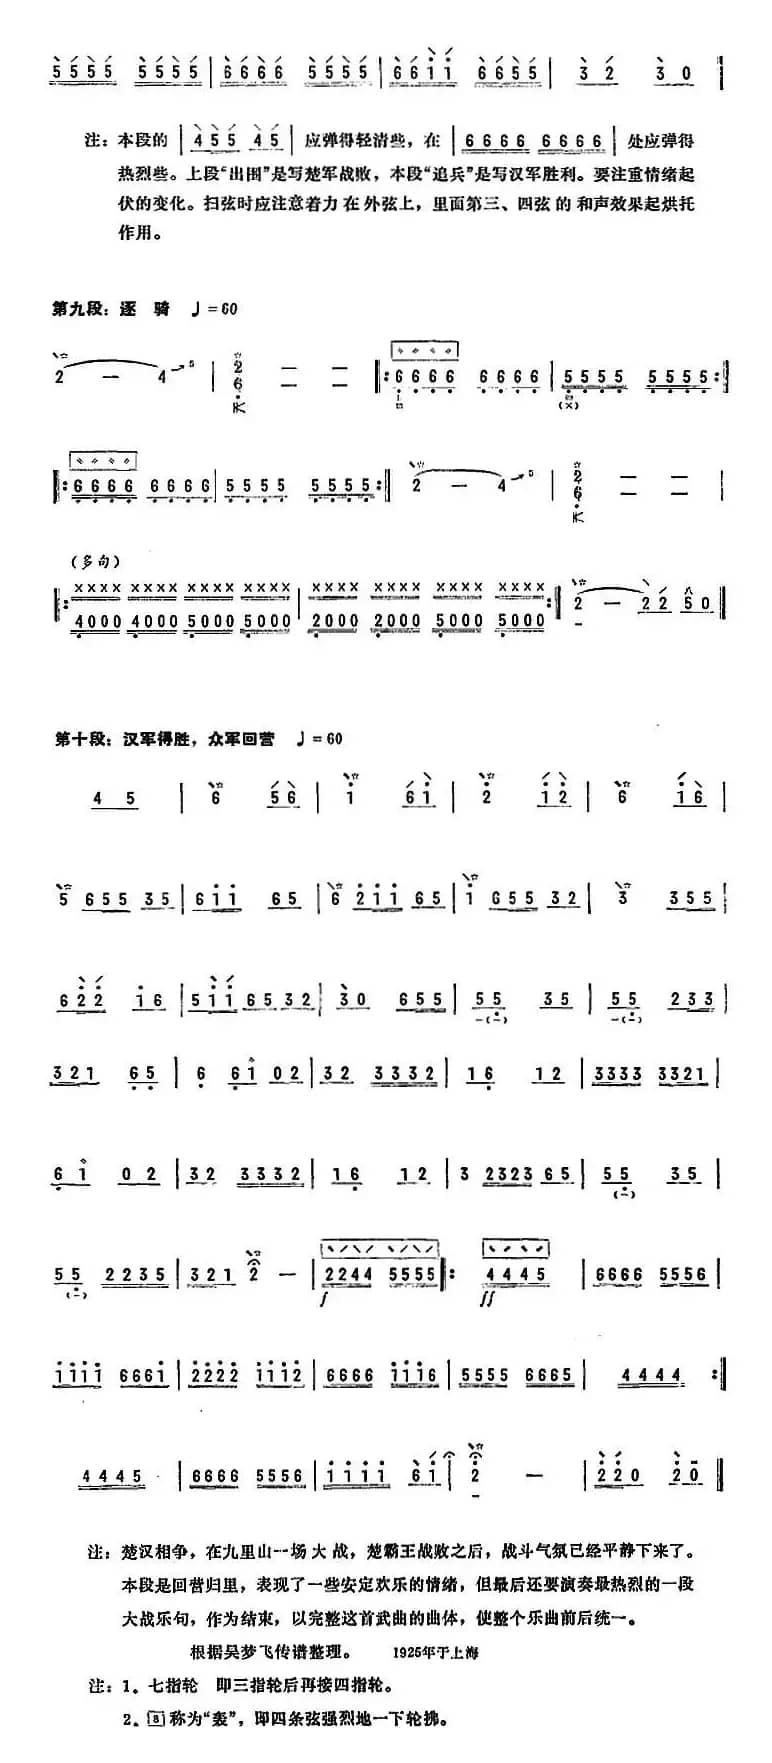 5555 5555 | 6666 5555 | 66ii 6655 | 3 2 3 0 ‖
注：本段的 | 455 45 | 应弹得轻清些，在 | 6666 6666 | 处应弹得
热烈些。上段“出围”是写楚军战败，本段“追兵”是写汉军胜利。要注重情绪起
伏的变化。扫弦时应注意着力在外弦上，里面第三、四弦的和声效果起烘托
作用。
第九段：逐 骑 ♩=60
2 — 4 5 | 2 6 — — ‖: 6666 6666 | 5555 5555 :‖
‖: 6666 6666 | 5555 5555 :‖ 2 — 4 5 | 2 6 — — |
（多句）
‖: ×××× ×××× ×××× ×××× | ×××× ×××× ×××× ×××× :‖
4000 4000 5000 5000 | 2000 2000 5000 5000 :‖ 2 — 22 50 |
第十段：汉军得胜，众军回营 ♩=60
4 5 | 6 56 | i 6i | 2 i2 | 6 i6 |
5 655 35 | 6ii 65 | 6 2ii 65 | i 655 32 | 3 355 |
622 i6 | 5ii 6532 | 30 655 | 55 35 | 55 233 |
321 65 | 6 61 02 | 32 3332 | 16 12 | 3333 3321 |
61 02 | 32 3332 | 16 12 | 3 2323 65 | 55 35 |
55 2235 | 321 2 — | 2244 5555 ‖: 4445 | 6666 5556 |
f ff
iiii 666i | 2222 iii2 | 6666 iii6 | 5555 6665 | 4444 :‖
4445 | 6666 5556 | iiii 6i | 2 — | 220 20 ‖
注：楚汉相争，在九里山一场大战，楚霸王战败之后，战斗气氛已经平静下来了。
本段是回营归里，表现了一些安定欢乐的情绪，但最后还要演奏最热烈的一段
大战乐句，作为结束，以完整这首武曲的曲体，使整个乐曲前后统一。
根据吴梦飞传谱整理。 1925年于上海
注：1．七指轮 即三指轮后再接四指轮。
2．8称为“轰”，即四条弦强烈地一下轮拂。